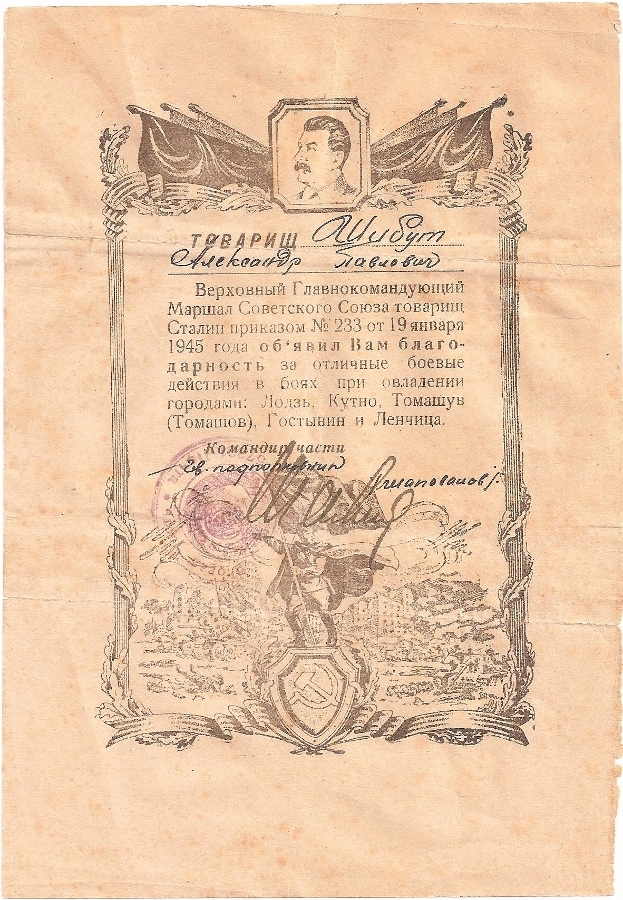 ТОВАРИЩ Шибут
Александр Павлович
Верховный Главнокомандующий
Маршал Советского Союза товарищ
Сталин приказом № 233 от 19 января
1945 года об'явил Вам благо-
дарность за отличные боевые
действия в боях при овладении
городами: Лодзь, Кутно, Томашув
(Томашов), Гостынин и Ленчица.
Командир части
Гв. подполковник